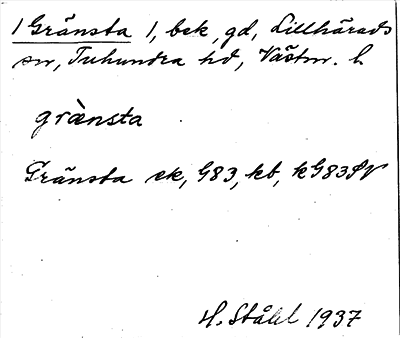 1 Gränsta 1, bek, gd, Lillhärads
sn, Tuhundra hd, Västm. l.
grànsta
Gränsta ek, G83, kb, kG83
H. Ståhl 1937